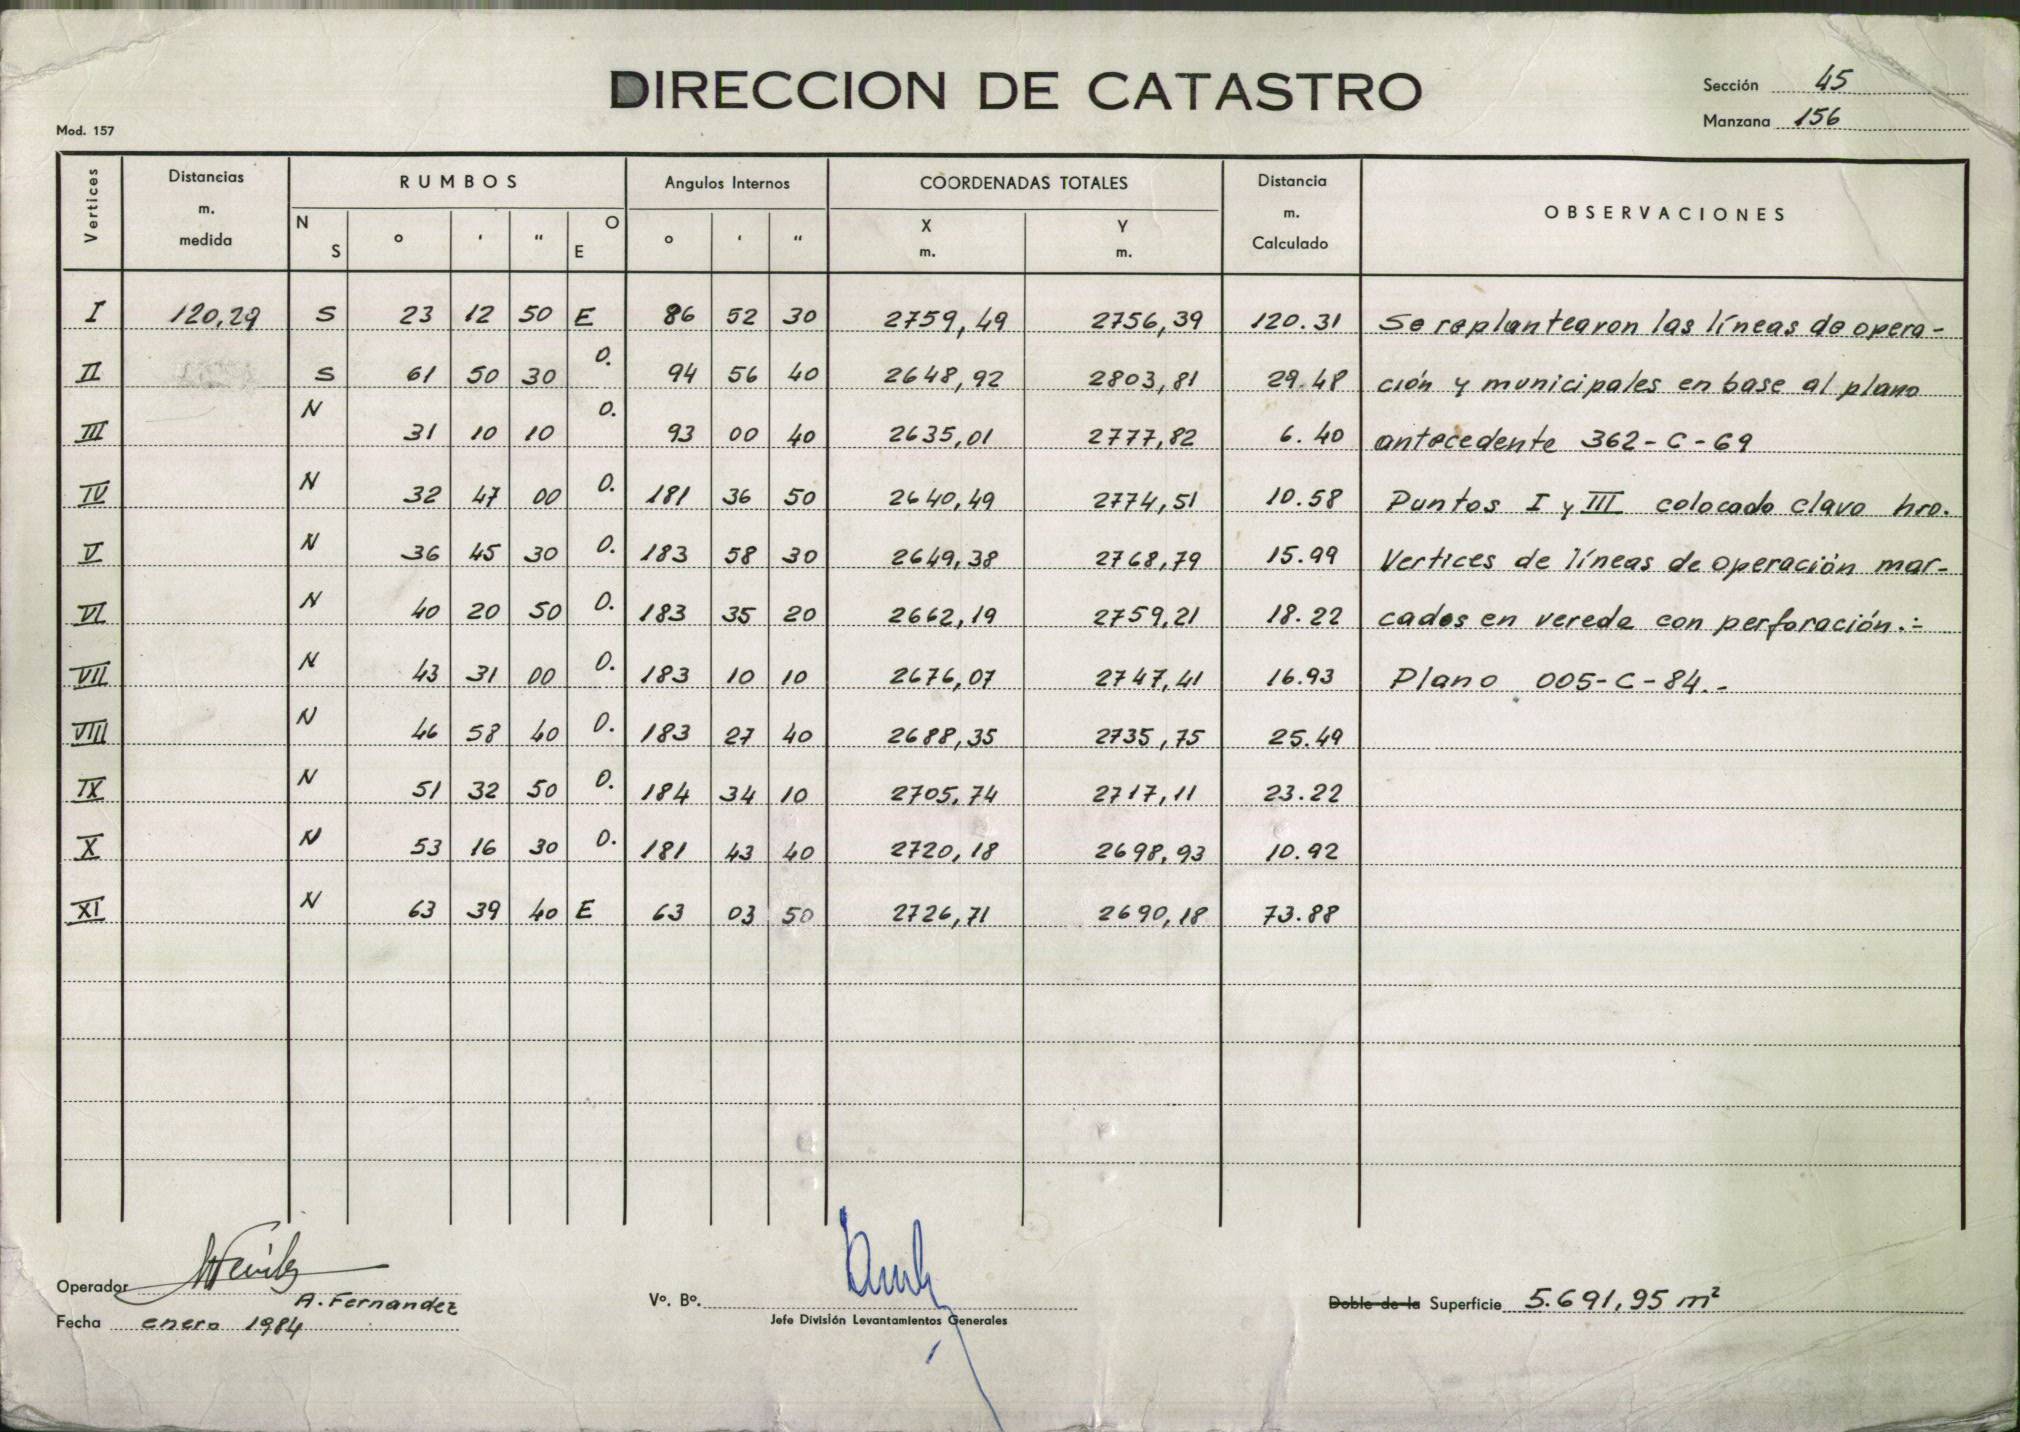 DIRECCION DE CATASTRO
Sección 45
Manzana 156
Mod. 157
Vertices Distancias m. medida RUMBOS Angulos Internos COORDENADAS TOTALES Distancia m. Calculado OBSERVACIONES
N S o ' " O E o ' " X m. Y m.
I 120,29 S 23 12 50 E 86 52 30 2759,49 2756,39 120.31 Se replantearon las líneas de opera-
II S 61 50 30 O. 94 56 40 2648,92 2803,81 29.48 ción y municipales en base al plano
III N 31 10 10 O. 93 00 40 2635,01 2777,82 6.40 antecedente 362-C-69
IV N 32 47 00 O. 181 36 50 2640,49 2774,51 10.58 Puntos I y III colocado clavo hro.
V N 36 45 30 O. 183 58 30 2649,38 2768,79 15.99 Vertices de líneas de operación mar-
VI N 40 20 50 O. 183 35 20 2662,19 2759,21 18.22 cados en vereda con perforación.:-
VII N 43 31 00 O. 183 10 10 2676,07 2747,41 16.93 Plano 005-C-84.-
VIII N 46 58 40 O. 183 27 40 2688,35 2735,75 25.49
IX N 51 32 50 O. 184 34 10 2705,74 2717,11 23.22
X N 53 16 30 O. 181 43 40 2720,18 2698,93 10.92
XI N 63 39 40 E 63 03 50 2726,71 2690,18 73.88
Operador
A. Fernandez
Fecha enero 1984
Vº. Bº.
Jefe División Levantamientos Generales
Doble de la Superficie 5.691,95 m²